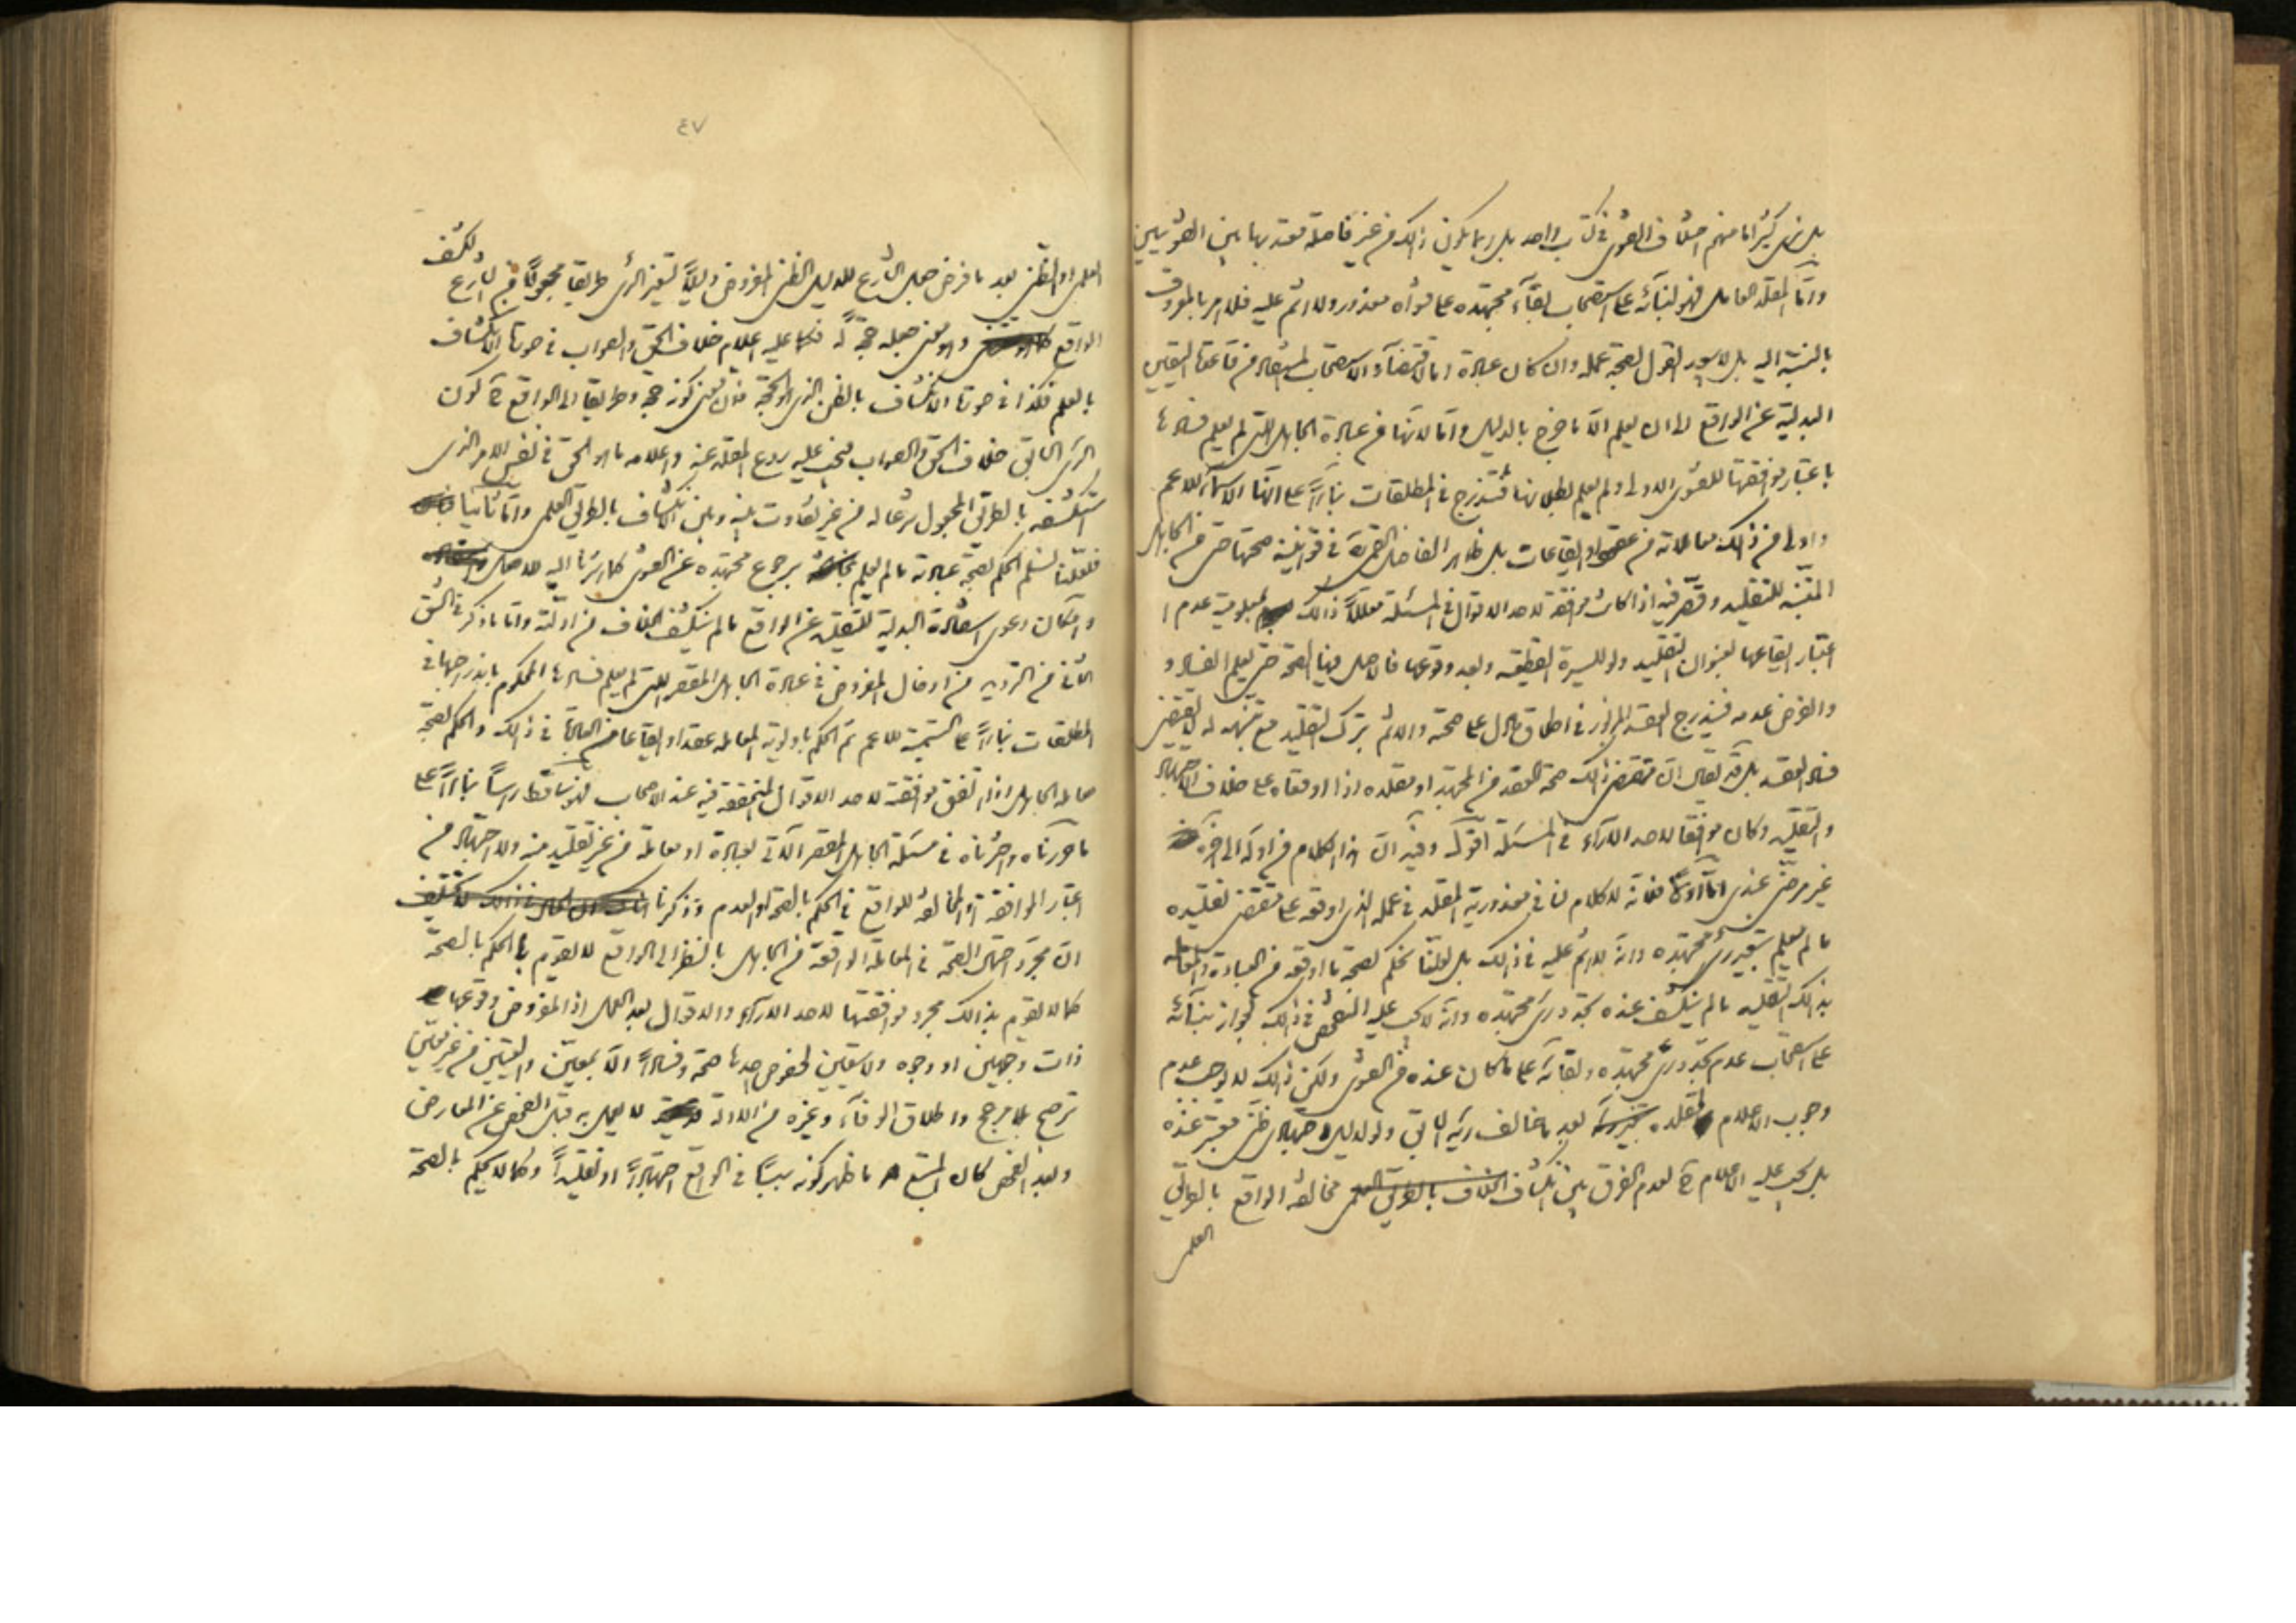 بل نرى كثيرا ما منهم اختلاف الفتوى في كتاب واحد بل ربما يكون ذلك من غير فاصلة معتد بها بين الفتويين
وامّا المقلد العامل فهو لبنائه على استصحاب بقاء مجتهده على فتواه معذور ولا اثم عليه فلا امر بالمعروف
بالنسبة اليه بل لا يبعد القول بصحة عمله وان كان عبادة اما لاقتضاء الاستصحاب المستفاد من قاعدة اليقين
البدلية عن الواقع الى ان يعلم الّا ما خرج بالدليل وامّا لانّها من عبادة الجاهل التي لم يعلم فسادها
باعتبار موافقتها للفتوى الاولى ولم يعلم بطلانها فتندرج في المطلقات بناءً على انّها الاسماء للاعم
واولى من ذلك معاملاته من عقود او ايقاعات بل ظاهر الفاضل القمي في قوانينه صحتها حتى من الجاهل
المتنبه للتقليد وقصر فيه اذا كانت موافقة لاحد الاقوال في المسئلة معلّلاً ذلك بمعلومية عدم ا
اعتبار ايقاعها بعنوان التقليد ولو للسيرة القطعية وبعد وقوعها فالاصل فيها الصحة حتى يعلم الفساد و
والفرض عدمه فيندرج العقد المزبور في اطلاق ما دل على صحته والاثم بترك التقليد مع تنبهه له لا يقتضي
فساد العقد بل قد يقال انّ مقتضى ذلك صحة العقد من المجتهد او مقلده اذا اوقعاه على خلاف الاجتهاد
والتقليد وكان موافقا لاحد الآراء في المسئلة اقول وفيه انّ هذا الكلام من اوله الى اخره
غير مرضيّ عندي امّا اوّلاً فلانّه لا كلام لنا في معذورية المقلد في عمله الذي اوقعه على مقتضى تقليده
ما لم يعلم بتغير رأي مجتهده وانّه لا اثم عليه في ذلك بل لعلّنا نحكم بصحة ما اوقعه من العبادة والمعاملة
بذلك التقليد ما لم ينكشف عنده تجدد رأي مجتهده وانّه لا يجب عليه الفحص في ذلك لجواز بنائه
على استصحاب عدم تجدد رأي مجتهده وبقائه على ما كان عنده من الفتوى ولكن ذلك لا يوجب عدم
وجوب الاعلام لمقلده بعد ما خالف رأيه السابق ولو لدليل اجتهادي ظني معتبر عنده
بل يجب عليه الاعلام ح لعدم الفرق بين انكشاف مخالفة الواقع بالطريق
العلمي
٤٧
العلمي او الظني بعد ما فرض جعل الشارع للدليل الظني المفروض دليلاً لتغير الرأي طريقا مجعولاً من الشارع
ولكشف
الواقع وهو معنى جعله حجة له فكما عليه اعلام خلاف الحق والصواب في صورة الانكشاف
بالعلم فكذا في صورة الانكشاف بالظن الذي هو الحجة فانّ معنى كونه حجة وطريقا الى الواقع ح كون
الرأي السابق خلاف الحق والصواب فيجب عليه ردع المقلد عنه واعلامه ما هو الحق في نفس الامر الذي
استكشفه بالطريق المجعول شرعا له من غير تفاوت بينه وبين الانكشاف بالطريق العلمي وامّا ثانيا
فلعلّنا نسلّم الحكم بصحة عبادته ما لم يعلم برجوع مجتهده عن الفتوى كما اشرنا اليه للاصل
وامكان دعوى استفادة البدلية للتقليد عن الواقع ما لم ينكشف الخلاف من ادلته وامّا ما ذكر في الشق
الثاني من الترديد من ادخال المفروض في عبادة الجاهل المقصر التي لم يعلم فسادها المحكوم باندراجها في
المطلقات بناءً على التسمية للاعم ثم الحكم باولوية المعاملة عقدا او ايقاعا من العبادة في ذلك والحكم بصحة
معاملة الجاهل اذا اتفق موافقته لاحد الاقوال المتحققة فيه عند الاصحاب فهو ساقط راسًا بناءً على
ما حررناه واخترناه في مسئلة الجاهل المقصر الآتي بعبادة او معاملة من غير تقليد منه ولا اجتهاد من
اعتبار الموافقة او المخالفة للواقع في الحكم بالصحة او العدم وذكرنا
انّ مجرد احتمال الصحة في المعاملة الواقعة من الجاهل بالنظر الى الواقع لا يقوم بالحكم بالصحة
كما لا يقوم بذلك مجرد موافقتها لاحد الآراء والاقوال بعد العمل اذ المفروض وقوعها
ذات وجهين او وجوه ولا يتعين لخصوص احدها صحة وفسادًا الّا بمعيّن والتعيين من غير معيّن
ترجيح بلا مرجح واطلاق الوفاء وغيره من الادلة لا يعمل به قبل الفحص عن المعارض
وبعد الفحص كان المتبع ما ظهر كونه سببًا في الواقع اجتهادًا او تقليدًا وكما لا يحكم بالصحة